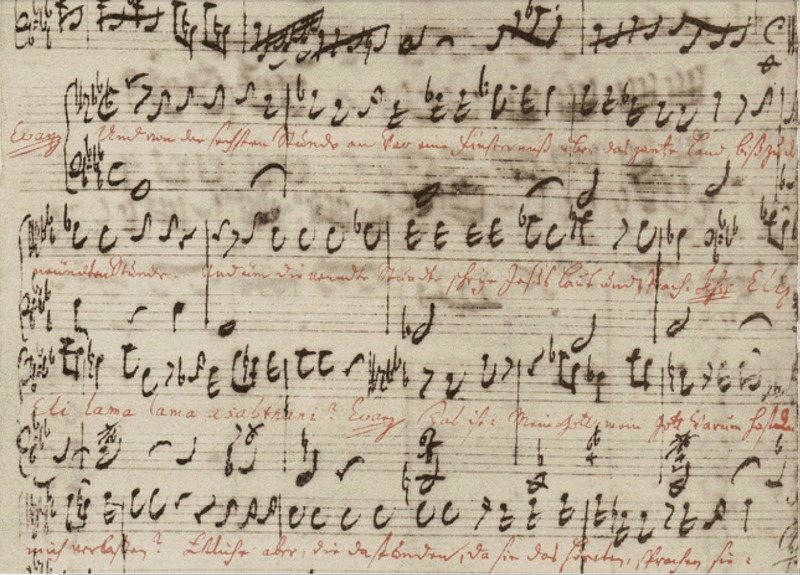 Evang Und von der sechsten Stunde an war eine Finsternuß über das gantze Land biß zu der
neundten Stunde. Und um die neundte Stunde schrye Jesus laut und sprach: Jesus Eli,
Eli lama lama asabthani? Evang Das ist: Mein Gott, mein Gott warum hastu
mich verlassen? Etliche aber, die da stunden, da sie das höreten, sprachen sie: